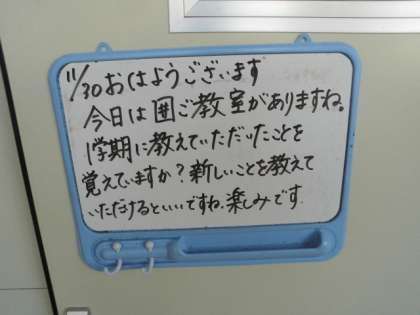 11/30 おはようございます
今日は囲ご教室がありますね。
1学期に教えていただいたことを
覚えていますか?新しいことを教えて
いただけるといいですね。楽しみです。